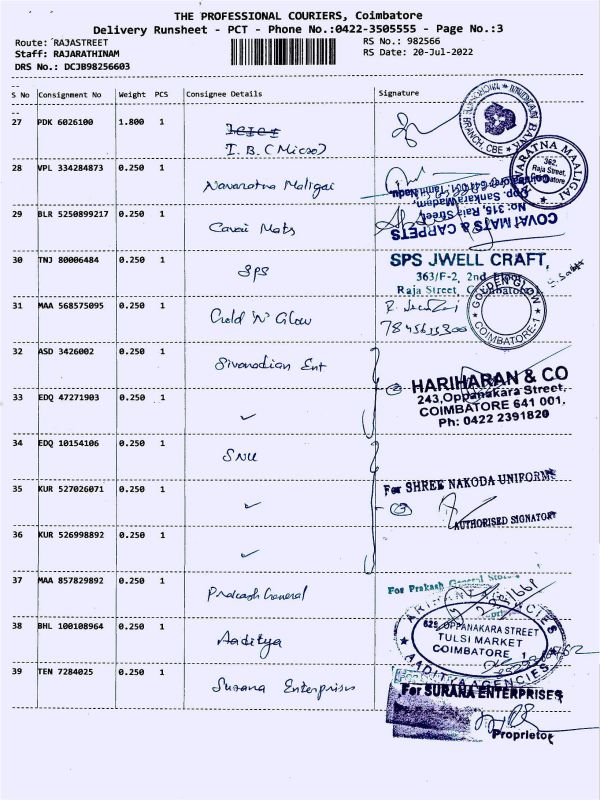 THE PROFESSIONAL COURIERS, Coimbatore
Delivery Runsheet - PCT - Phone No.:0422-3505555 - Page No.:3
Route: RAJASTREET
Staff: RAJARATHINAM
DRS No.: DCJB98256603
RS No.: 982566
RS Date: 20-Jul-2022
S No Consignment No Weight PCS Consignee Details Signature
27 PDK 6026100 1.800 1
I.B. (Micro)
INDIAN BANK
BRANCH, CBE
28 VPL 334284873 0.250 1 Navaratna Maligai
NAVARATNA MAALIGAI
362,
Raja Street,
Coimbatore
29 BLR 5250899217 0.250 1 Covai Mats
COVAI MATS & CARPETS
No: 315, Raja Street,
Opp. Sankara
Coimbatore-641 001. Tamil Nadu
30 TNJ 80006484 0.250 1 SPS
SPS JWELL CRAFT,
363/F-2, 2nd Floor
Raja Street, Coimbatore
31 MAA 568575095 0.250 1 Gold 'N' Glow
GOLDEN GLOW
COIMBATORE-1
32 ASD 3426002 0.250 1 Sivanadian Ent
② HARIHARAN & CO
243, Oppanakara Street,
COIMBATORE 641 001,
Ph: 0422 2391820
33 EDQ 47271903 0.250 1 ✓
34 EDQ 10154106 0.250 1 SNU
35 KUR 527026071 0.250 1 ✓
For SHREE NAKODA UNIFORMS
③
AUTHORISED SIGNATORY
36 KUR 526998892 0.250 1 ✓
37 MAA 857829892 0.250 1 Prakash General
For Prakash General Stores
38 BHL 100108964 0.250 1 Aaditya
ARIHANT AGENCIES
625, OPPANAKARA STREET
TULSI MARKET
COIMBATORE 1
AADITYA AGENCIES
39 TEN 7284025 0.250 1 Surana Enterprises
For SURANA ENTERPRISES
Proprietor